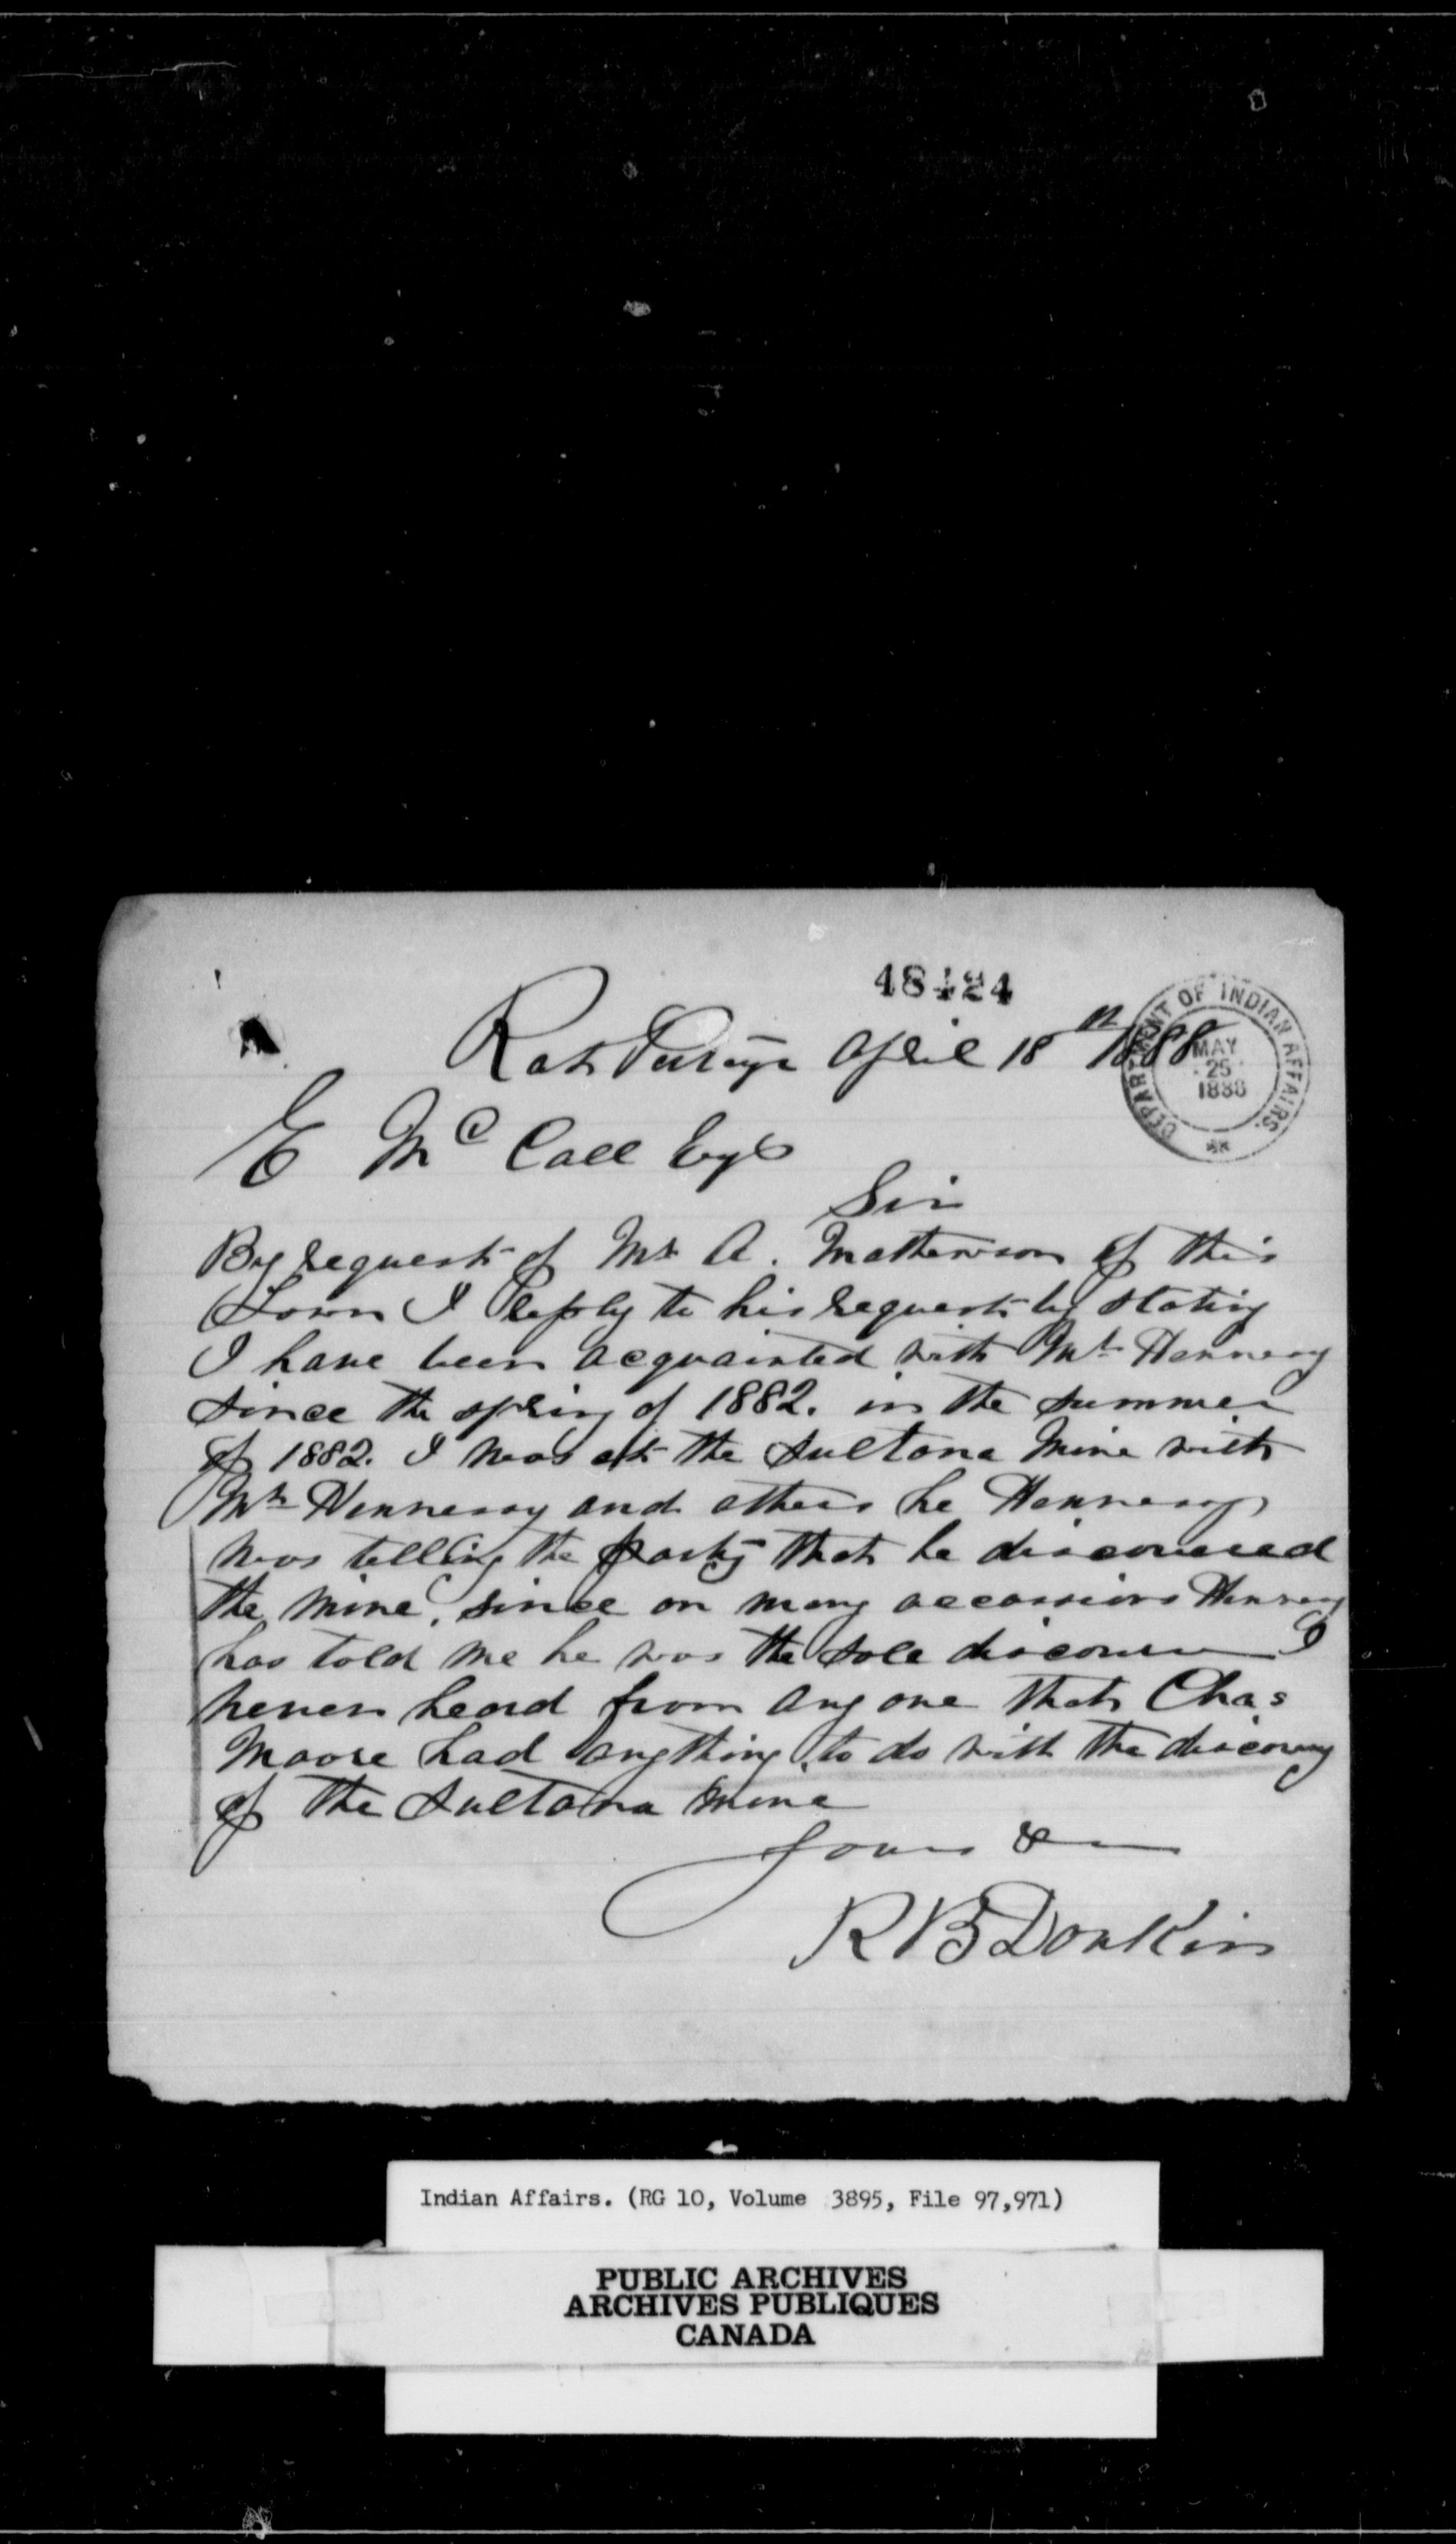 48424
Rat Portage April 18th 1888
DEPARTMENT OF INDIAN AFFAIRS.
MAY
25
1888
E McCall Esq
Sir
By request of Mr A. Mathewson of this
Town I reply to his request by stating
I have been acquainted with Mr Hennesy
since the spring of 1882. in the summer
of 1882. I was at the Sultana Mine with
Mr Hennessy and others he Hennessy
was telling the party that he discovered
the mine, since on many occassions Hennesy
has told me he was the sole discoverer I
never heard from any one that Chas
Moore had anything to do with the discovery
of the Sultana mine
Yours &
R B Donkin
Indian Affairs. (RG 10, Volume 3895, File 97,971)
PUBLIC ARCHIVES
ARCHIVES PUBLIQUES
CANADA